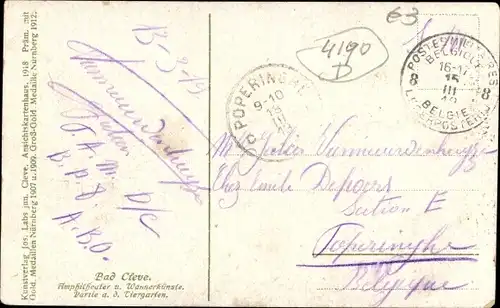 Kunstverlag Jos. Labs jun. Cleve. Ansichtskartenhaus. 1918 Präm. mit
Gold. Medaillen Nürnberg 1907 u. 1909. Groß-Gold. Medaille Nürnberg 1912.
13-3-19
J. A. M. D/C
B. P. D
A.B.O.
4190
D
63
POPERINGHE
9-10
POSTES MILITAIRES
BELGIQUE
16-17
15
III
8 8
BELGIE
LEGERPOSTERIJ
Mr Jules Vanneuvenhuyze
Chez Emile Depoors
Section E
Poperinghe
Belgique
Bad Cleve.
Amphitheater u. Wannerkünste.
Partie a. d. Tiergarten.